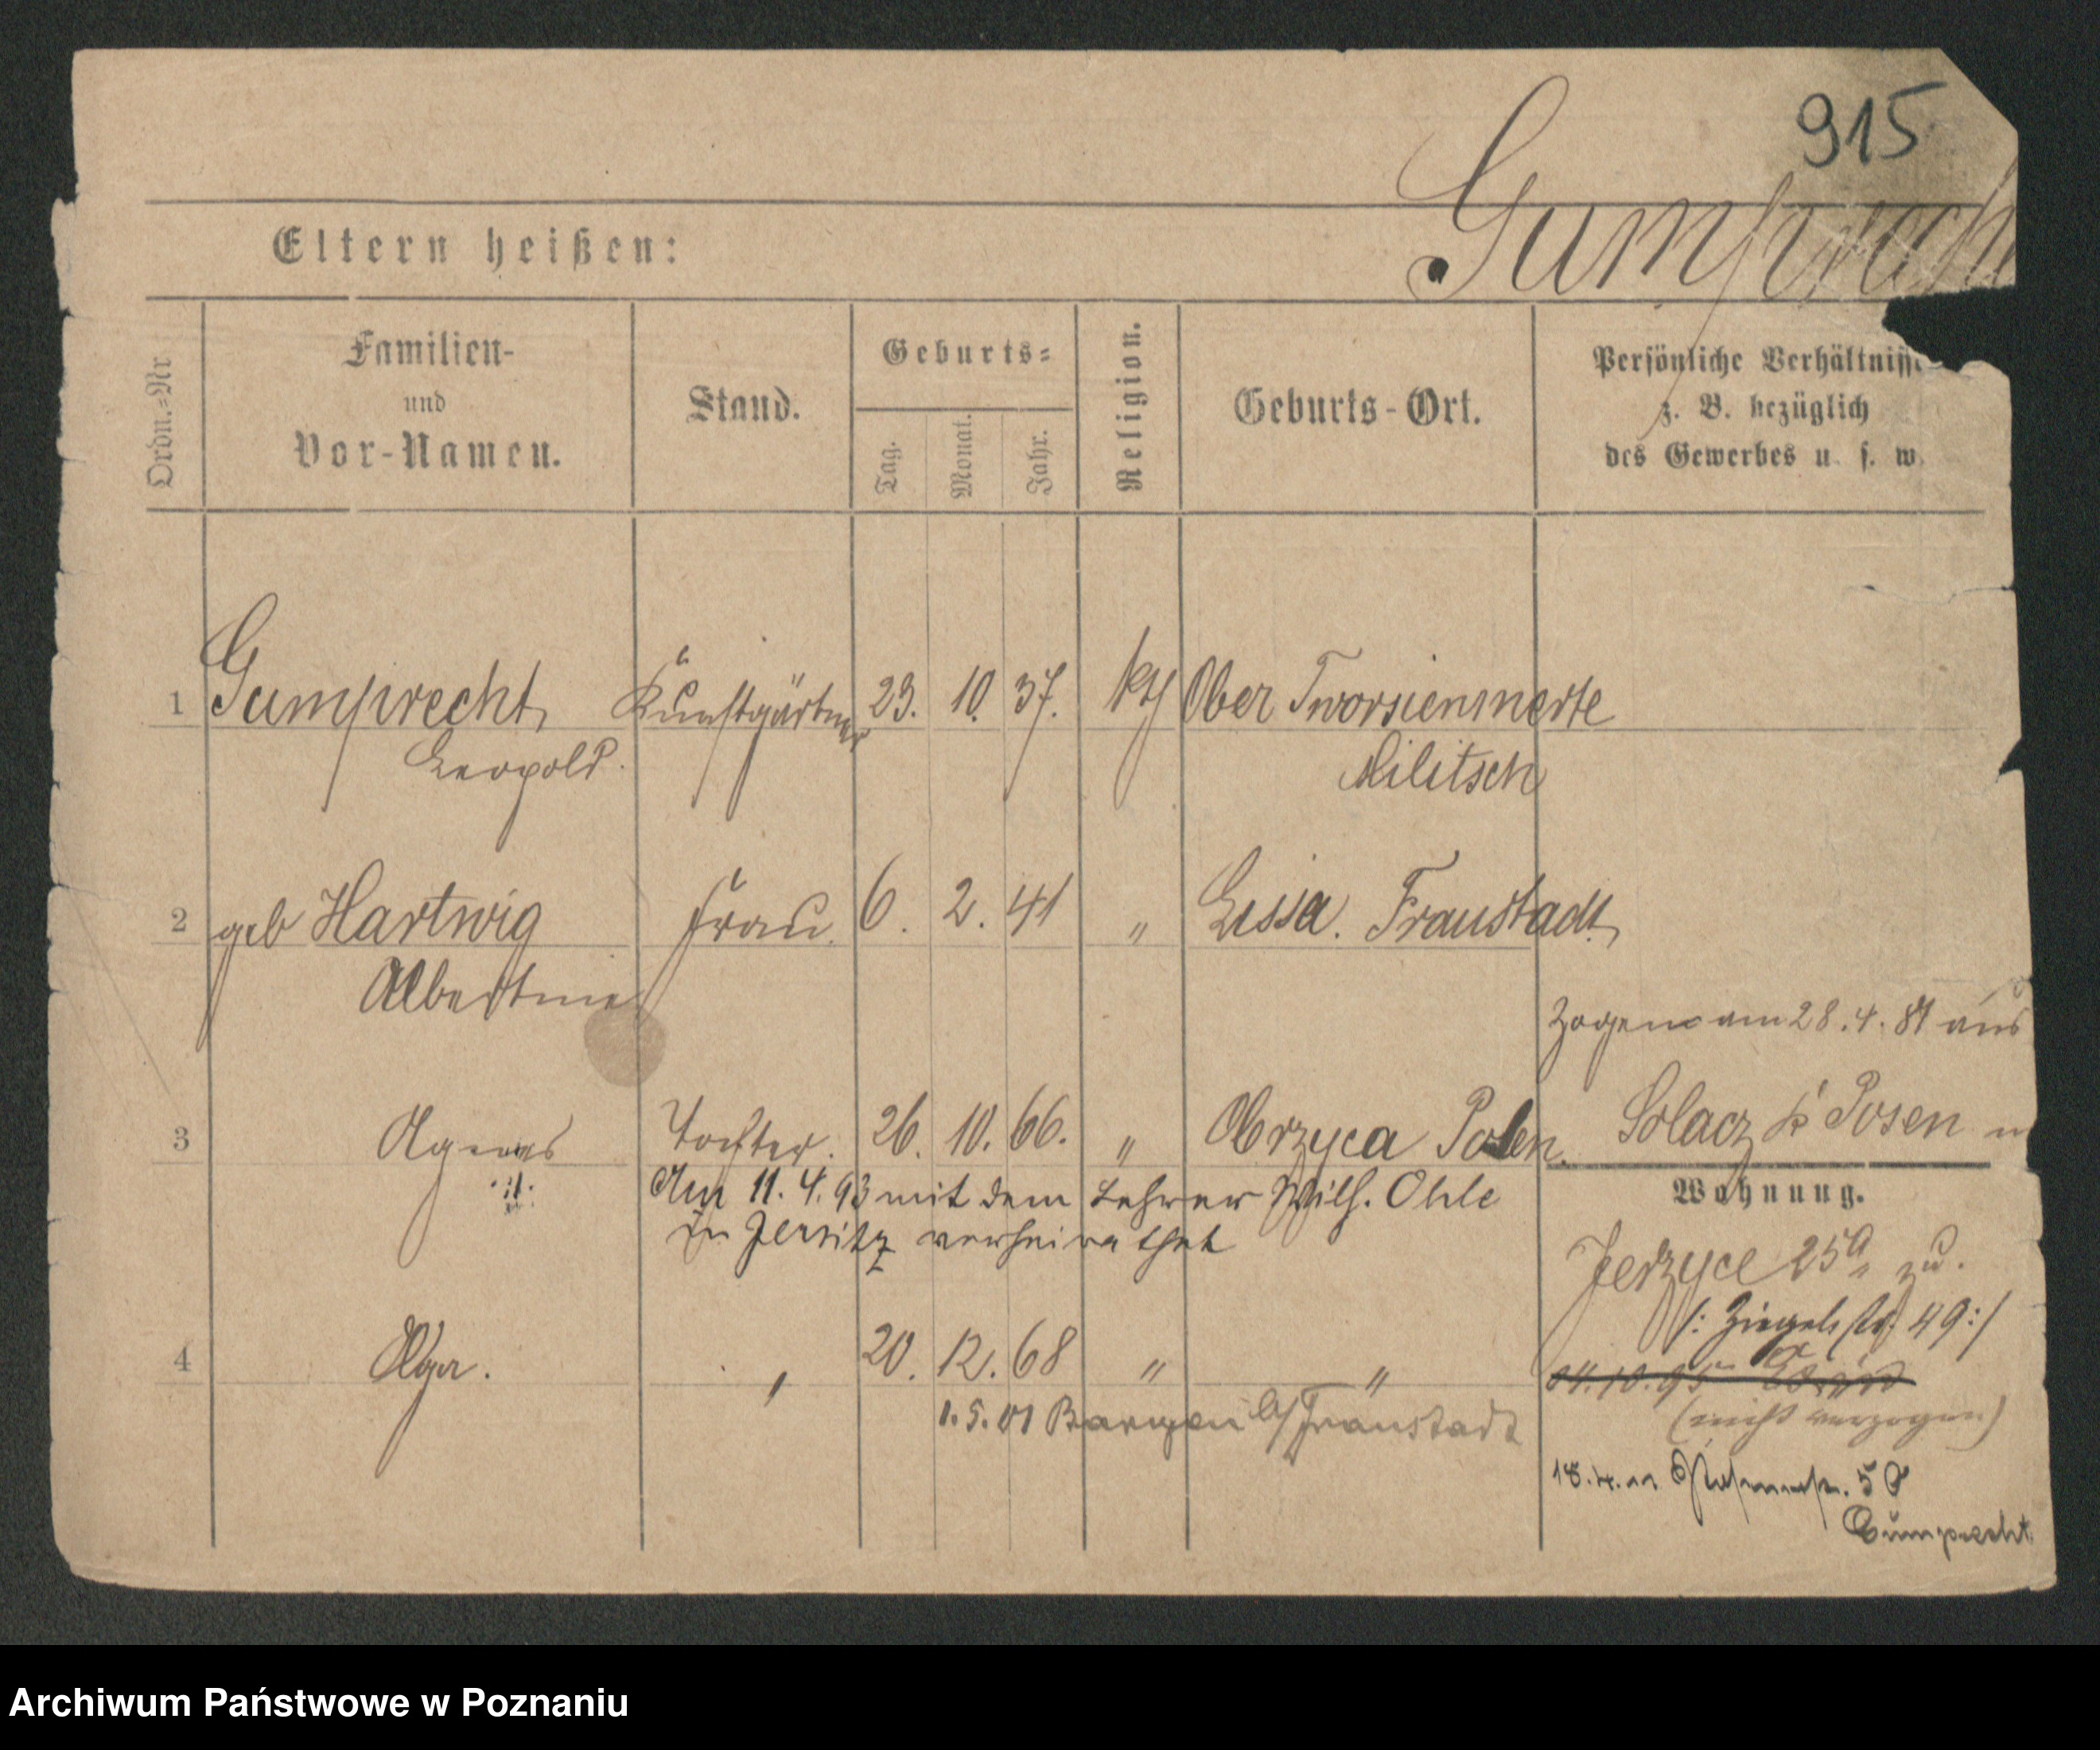 915
Gumprech
Eltern heißen:
Ordn.=Nr
Familien-
und
Vor-Namen.
Stand.
Geburts=
Tag.
Monat.
Jahr.
Religion.
Geburts-Ort.
Persönliche Verhältniss
z. B. bezüglich
des Gewerbes u. s. w.
1 Gumprecht, Kunstgärtner 23. 10. 37. kth Ober
Leopold. Militsch
2 geb Hartwig Frau. 6. 2. 41 " Lissa. Fraustadt,
Albertine
Zogen am 28.4.81 aus
3 Agnes Tochter. 26. 10. 66. " Obrzyca Polen. Solacz Posen
Am 11.4.93 mit dem Lehrer Wilh. Ohle
in Jersitz verheirathet
Wohnung.
Jerzyce 25a, zu.
/: Ziegelstr. 49:/
4 Olga. " 20. 12. 68 " "
04.10.95
1.5.01 Bargen b/Fraustadt
(nicht verzogen)
5
Gumprecht
Archiwum Państwowe w Poznaniu